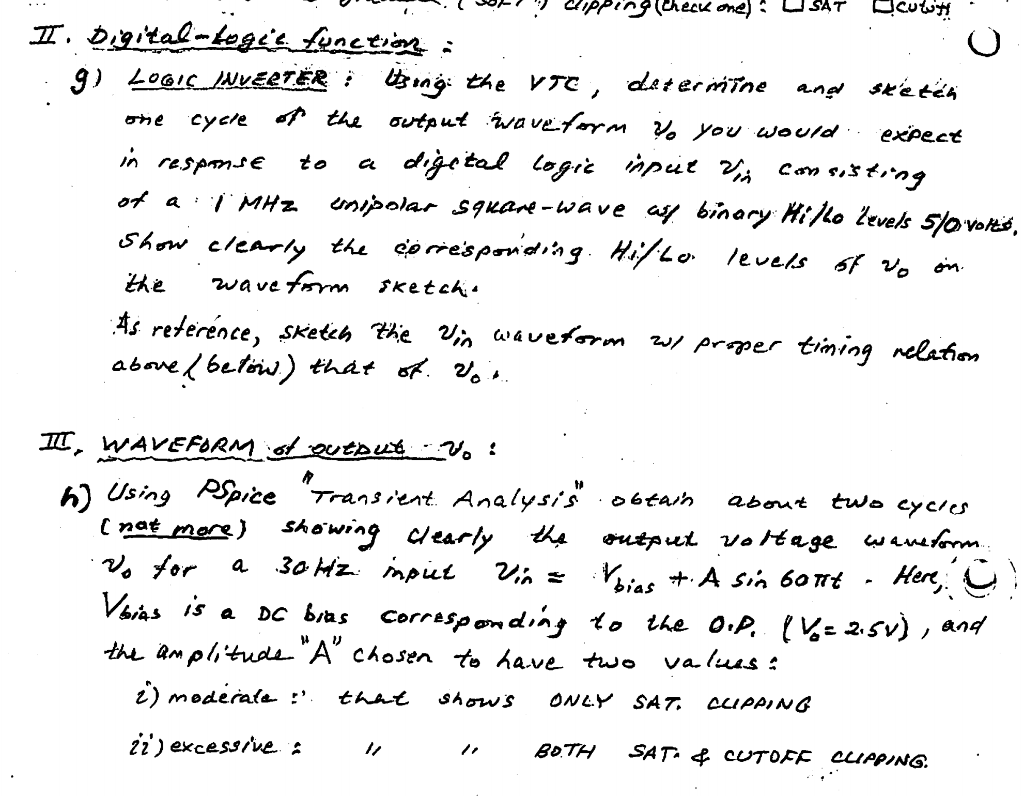 (SOFT?) clipping (check one): ☐ SAT ☐ Cutoff
II. Digital-Logic function:
g) LOGIC INVERTER: Using the VTC, determine and sketch
one cycle of the output waveform vo you would expect
in response to a digital logic input vin consisting
of a 1 MHz unipolar square-wave w/ binary Hi/Lo levels 5/0 volts.
Show clearly the corresponding Hi/Lo levels of vo on
the waveform sketch.
As reference, sketch the vin waveform w/ proper timing relation
above (below) that of vo.
III. WAVEFORM of output vo:
h) Using PSpice "Transient Analysis" obtain about two cycles
(not more) showing clearly the output voltage waveform
vo for a 30 Hz input vin = Vbias + A sin 60πt. Here,
Vbias is a DC bias corresponding to the O.P. (Vo = 2.5V), and
the amplitude "A" chosen to have two values:
i) moderate: that shows ONLY SAT. CLIPPING
ii) excessive: " " BOTH SAT. & CUTOFF CLIPPING.